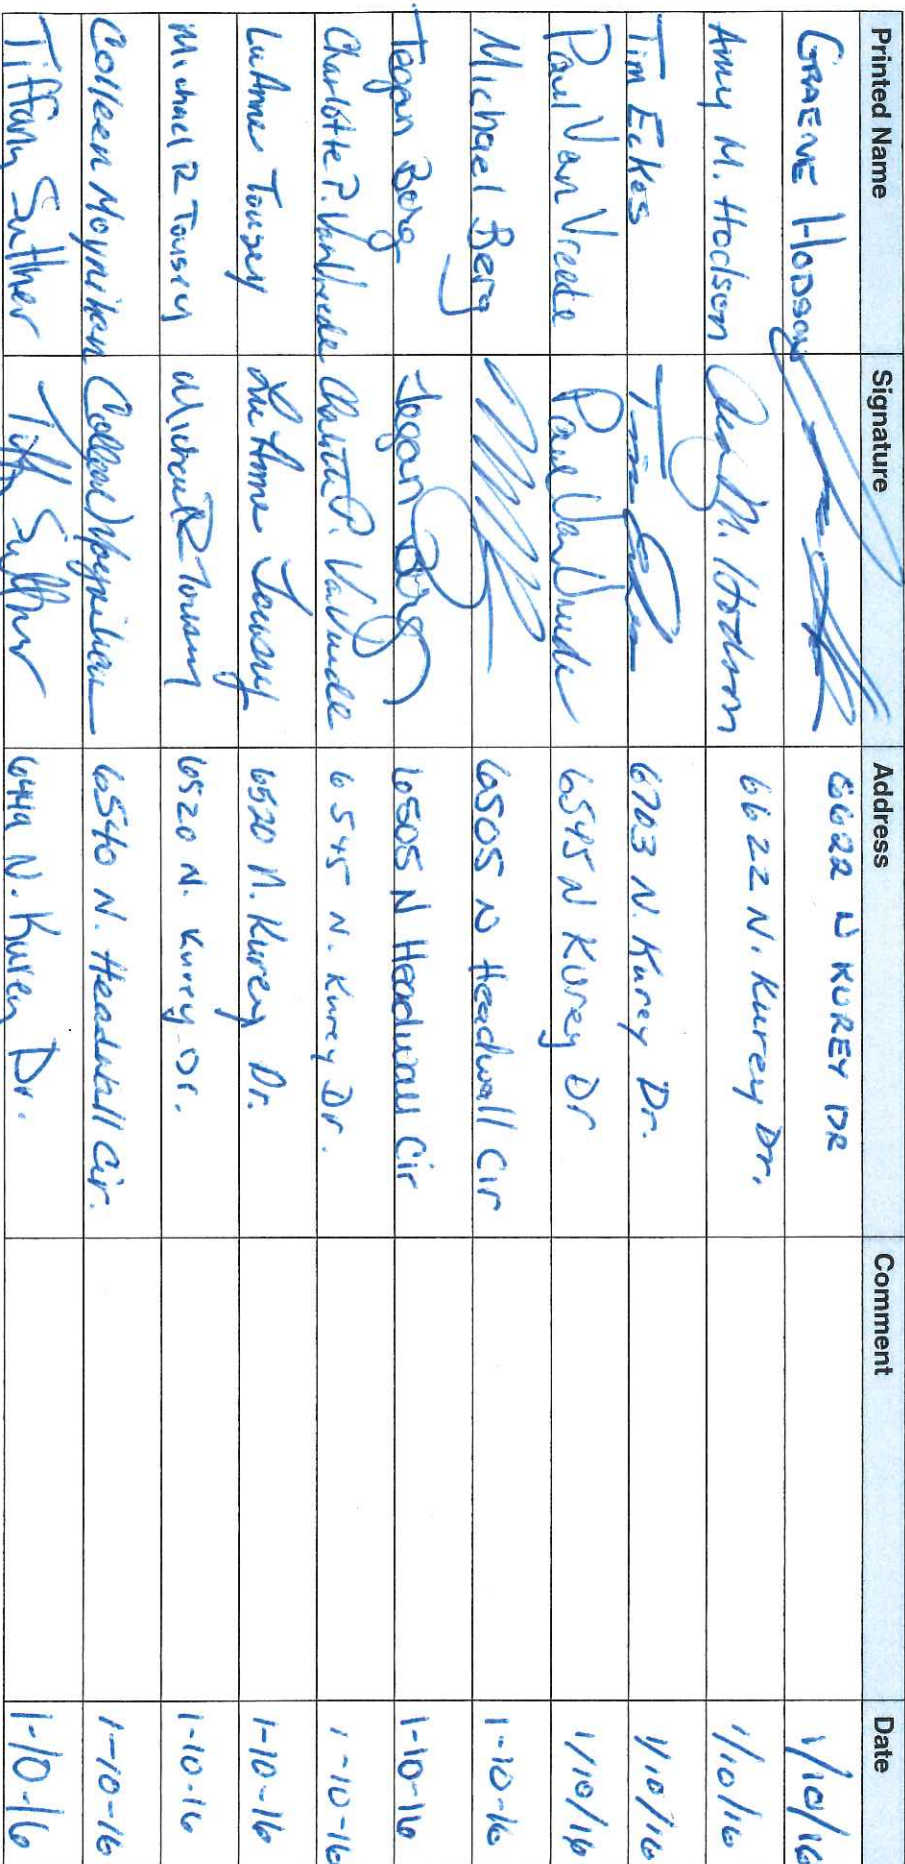 Printed Name Signature Address Comment Date
GRAEME HODSON 6622 N KUREY DR 1/10/16
Amy M. Hodson Amy M. Hodson 6622 N. Kurey Dr. 1/10/16
Tim Eckes 6703 N. Kurey Dr. 1/10/16
Paul Van Vreede Paul Van Vreede 6545 N Kurey Dr 1/10/16
Michael Berg 6505 N Headwall Cir 1-10-16
Tegan Berg Tegan Berg 6505 N Headwall Cir 1-10-16
Charlotte P. VanVreede Charlotte P. VanVreede 6545 N. Kurey Dr. 1-10-16
LuAnne Tousey LuAnne Tousey 6520 N. Kurey Dr. 1-10-16
Michael R Tousey Michael R Tousey 6520 N. Kurey Dr. 1-10-16
Colleen Moynihan Colleen Moynihan 6540 N. Headwall Cir. 1-10-16
Tiffany Suther N. Kurey Dr. 1-10-16